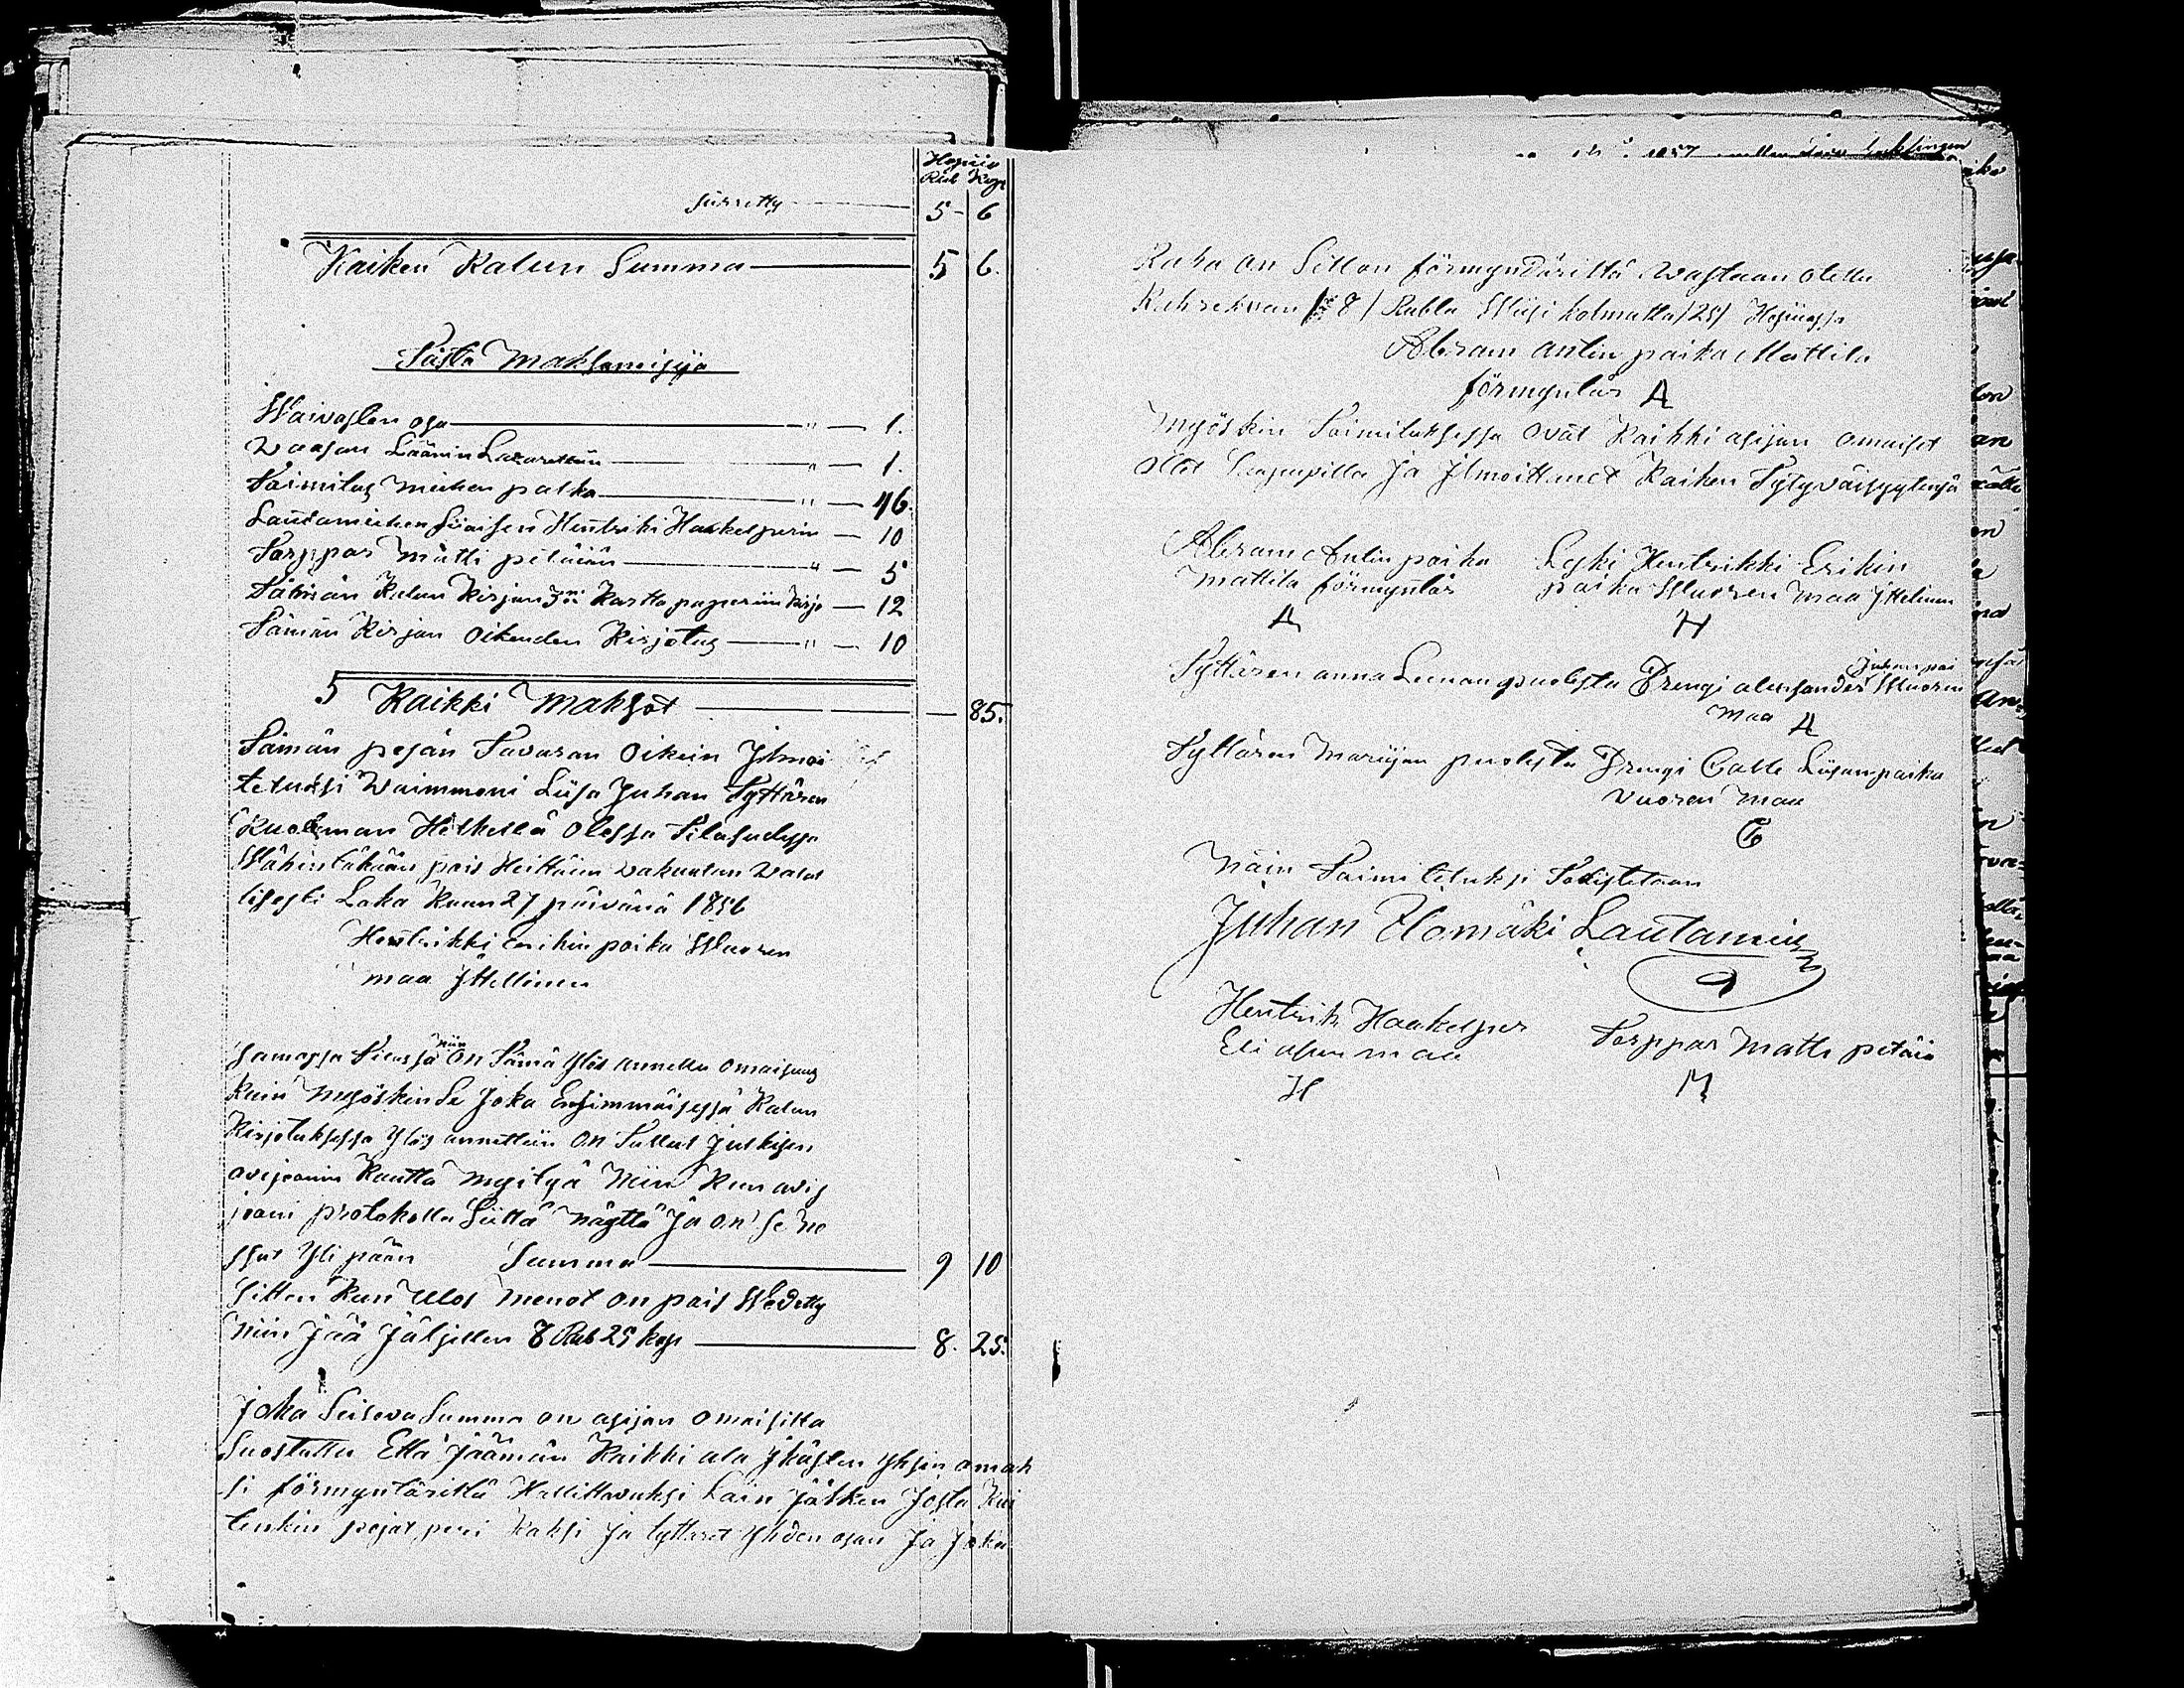 Hopiis
Rub Kop
siirretty 5 - 6
Kaiken Kalun Summa 5 6.
Tästä Maksamisija
Waivasten osa " 1.
Waasan Läänin Lazarettiin " 1.
Toimitus miehen palka " 46.
Lautamiehen siaisen Hentriki Haakelperin 10
Torppar Matti petäjän " 5
Tähmän Kalun Kirjan 3:n Kartta paperiin kirjo 12
Tämän Kirjan Oikeuden Kirjotus " 10
5 Kaikki Maksot 85.
Tämän pesän Tavaran Oikein Jlmoi
tetuksi Waimmoni Liisa Juhan Tyttären
Kuoleman Hetkellä Olessa Tilasudessa
Wähintäkään pois Heittäin vakuutan Wala
lisesti Loka Kuun 27 päivänä 1856
Hentrikki erikin poika Wuoren
maa Jttellinen
Samassa Tilassa niin on Tämä Ylös annettu omaisuus
Kuin myöskin Se Joka Ensimmäisessä Kalun
Kirjotuksessa Ylös annettiin On Tullut Julkisen
ovsjoonin Kautta myityä Niin Kun avis
jooni protokolla Siittä näyttä Ja on se no
ssut Yli pään Summa 9 10
Sitten Kun Ulos menot on pois Wedetty
Niin Jää Jäljellen 8 Rub 25 kop 8. 25.
Joka Seisova Summa on asijan omaisilta
Suostuttu Että Jäämän Kaikki ala Jkästen Yhsin omah
si förmyntärillä Hallittavaksi Lain Jälken Josta Kui
tenkin pojat peri kaksi Ja tyttäret Yhden osan Ja Joka
Raha on Sillon förmyndäriltä Wastaan otettu
Kahreksan 8 / Rubla Wiisi kolmatta /25/ Hopiassa
Abram antin poika Mattila
förmyntär A
Myöskin Toimituksessa ovat Kaikki asijan omaiset
ollet Saapuvilla Ja Jlmoittanet Kaiken Tytyväisyytensä
Abram Antin poika Leski Hentrikki Erikin
Mattila förmyntär poika Wuoren maa Jttelinen
A H
Tyttären anna Leenan puolesta Drengi aleksander Juhan poi Wuoren
maa A
Tyttären Mariijan puolesta Drengi Calle Liisan poika
Vuoren maa
C
Näin Toimitetuksi Todistetaan
Juhan Ylomäki Lautamies
Hentrik Haakelper Torppar Matti petäiä
Eli alun maa
H M